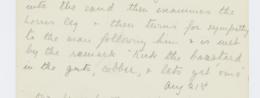 into the sand then examines the
horses leg & then turns for sympathy
to the man following him & is met
by the remark "Kick the basstard
in the guts, cobber, & lets get 'ome'
Aug 21st